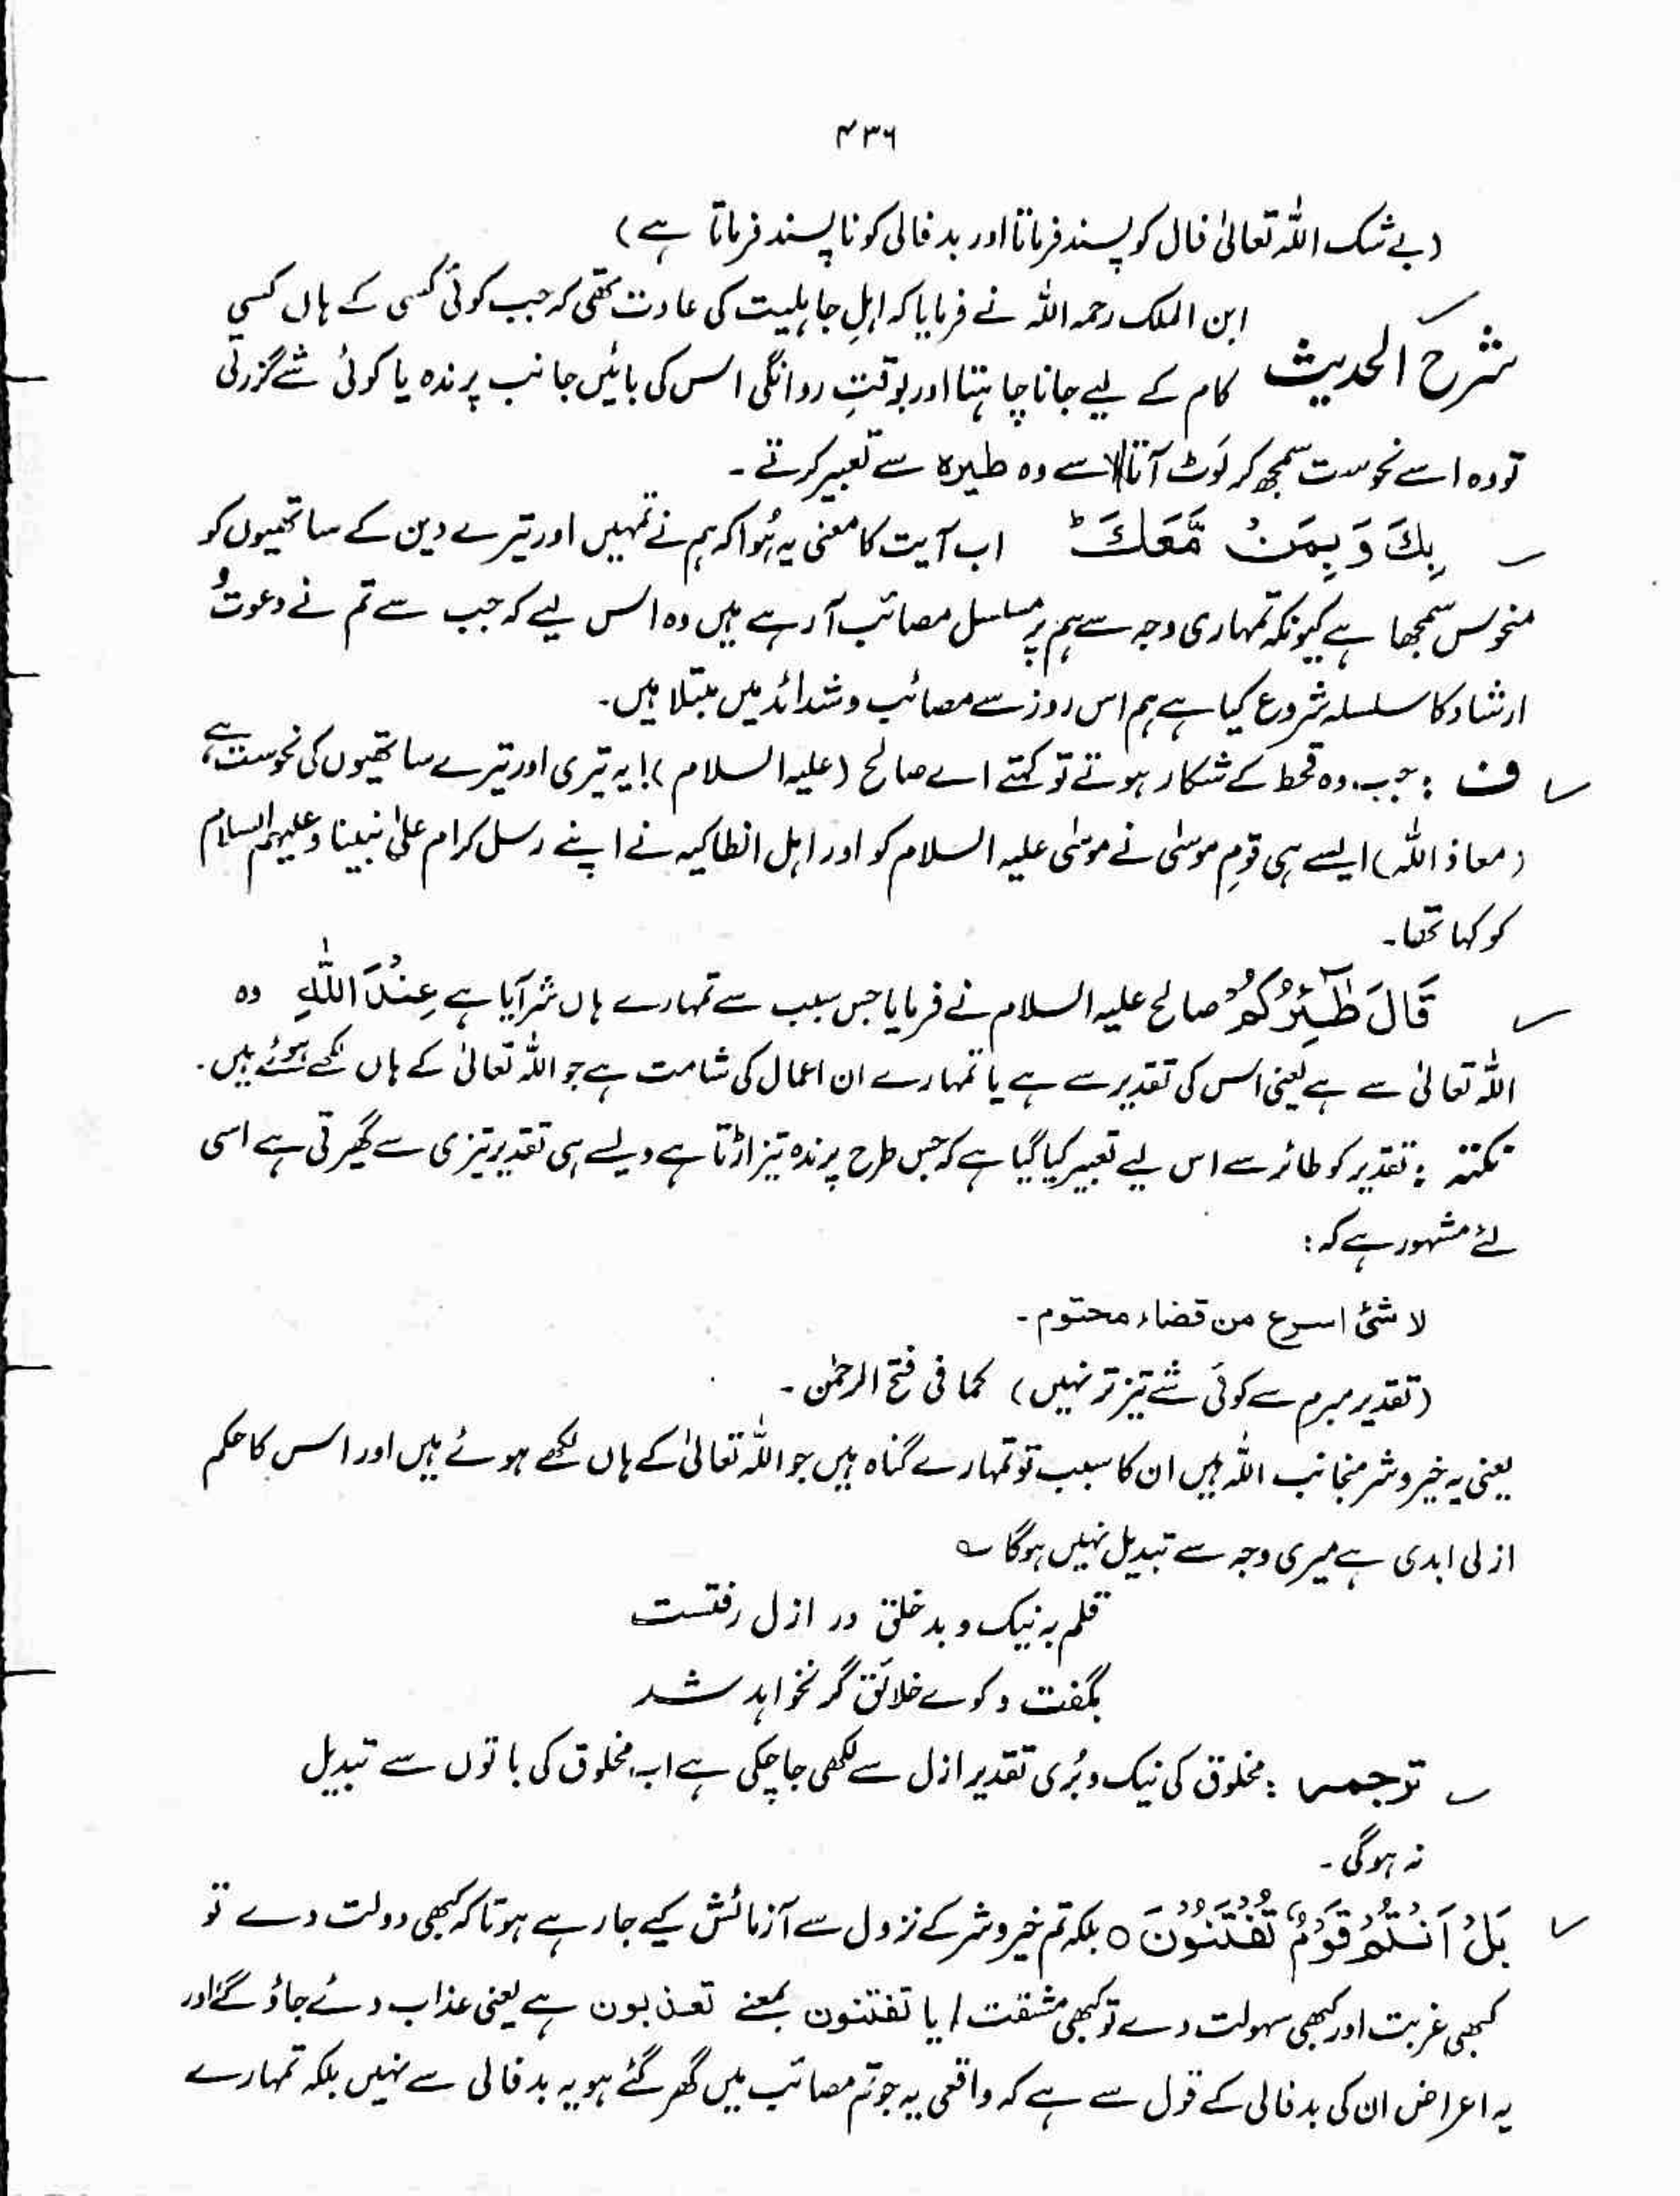 ۴۳۶
(بے شک اللہ تعالیٰ فال کو پسند فرماتا اور بدفالی کو ناپسند فرماتا ہے)
شرح الحدیث ابن الملک رحمہ اللہ نے فرمایا کہ اہلِ جاہلیت کی عادت تھی کہ جب کوئی کسی کے ہاں کسی
کام کے لیے جانا چاہتا اور بوقتِ روانگی اس کی بائیں جانب پرندہ یا کوئی شے گزرتی
تو وہ اسے نحوست سمجھ کر لَوٹ آتا اسے وہ طیرہ سے تعبیر کرتے ۔
بِكَ وَ بِمَنْ مَّعَكَ ؕ اب آیت کا معنی یہ ہُوا کہ ہم نے تمہیں اور تیرے دین کے ساتھیوں کو
منحوس سمجھا ہے کیونکہ تمہاری وجہ سے ہم پر مسلسل مصائب آ رہے ہیں وہ اس لیے کہ جب سے تم نے دعوت و
ارشاد کا سلسلہ شروع کیا ہے ہم اس روز سے مصائب و شدائد میں مبتلا ہیں۔
ف : جب وہ قحط کے شکار ہوتے تو کہتے اے صالح (علیہ السلام)! یہ تیری اور تیرے ساتھیوں کی نحوست ہے،
(معاذ اللہ) ایسے ہی قومِ موسٰی نے موسٰی علیہ السلام کو اور اہل انطاکیہ نے اپنے رسل کرام علیٰ نبینا و علیہم السلام
کو کہا تھا۔
قَالَ طٰٓئِرُكُمْ صالح علیہ السلام نے فرمایا جس سبب سے تمہارے ہاں شر آیا ہے عِنْدَ اللّٰهِ وہ
اللہ تعالیٰ سے ہے یعنی اس کی تقدیر سے ہے یا تمہارے ان اعمال کی شامت ہے جو اللہ تعالیٰ کے ہاں لکھے ہوئے ہیں۔
نکتہ : تقدیر کو طائر سے اس لیے تعبیر کیا گیا ہے کہ جس طرح پرندہ تیز اڑتا ہے ویسے ہی تقدیر تیزی سے گھیرتی ہے اسی
لئے مشہور ہے کہ :
لا شئ اسرع من قضاء محتوم ۔
(تقدیر مبرم سے کوئی شے تیز تر نہیں) کما فی فتح الرحمٰن ۔
یعنی یہ خیر و شر منجانب اللہ ہیں ان کا سبب تو تمہارے گناہ ہیں جو اللہ تعالیٰ کے ہاں لکھے ہوئے ہیں اور اس کا حکم
ازلی ابدی ہے میری وجہ سے تبدیل نہیں ہوگا ؎
قلم بہ نیک و بد خلق در ازل رفتست
بگفت و کوے خلائق گر نخواہد شد
ترجمہ : مخلوق کی نیک و بُری تقدیر ازل سے لکھی جا چکی ہے اب مخلوق کی باتوں سے تبدیل
نہ ہوگی ۔
بَلْ اَنْتُمْ قَوْمٌ تُفْتَنُوْنَ ○ بلکہ تم خیر و شر کے نزول سے آزمائش کیے جا رہے ہو تا کہ کبھی دولت دے تو
کبھی غربت اور کبھی سہولت دے تو کبھی مشقت / یا تفتنون بمعنے تعذبون ہے یعنی عذاب دئے جاؤ گے اور
یہ اعراض ان کی بدفالی کے قول سے ہے کہ واقعی یہ جو تم مصائب میں گھر گئے ہو یہ بدفالی سے نہیں بلکہ تمہارے